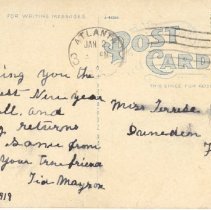 FOR WRITING MESSAGES
ATLANTA
JAN 2
POST
CARD
THIS SPACE FOR
ing you the
est New year
ll. and
y returns
Same from
Your true friend
Tia Mayson
919
Miss
Dunedin
F